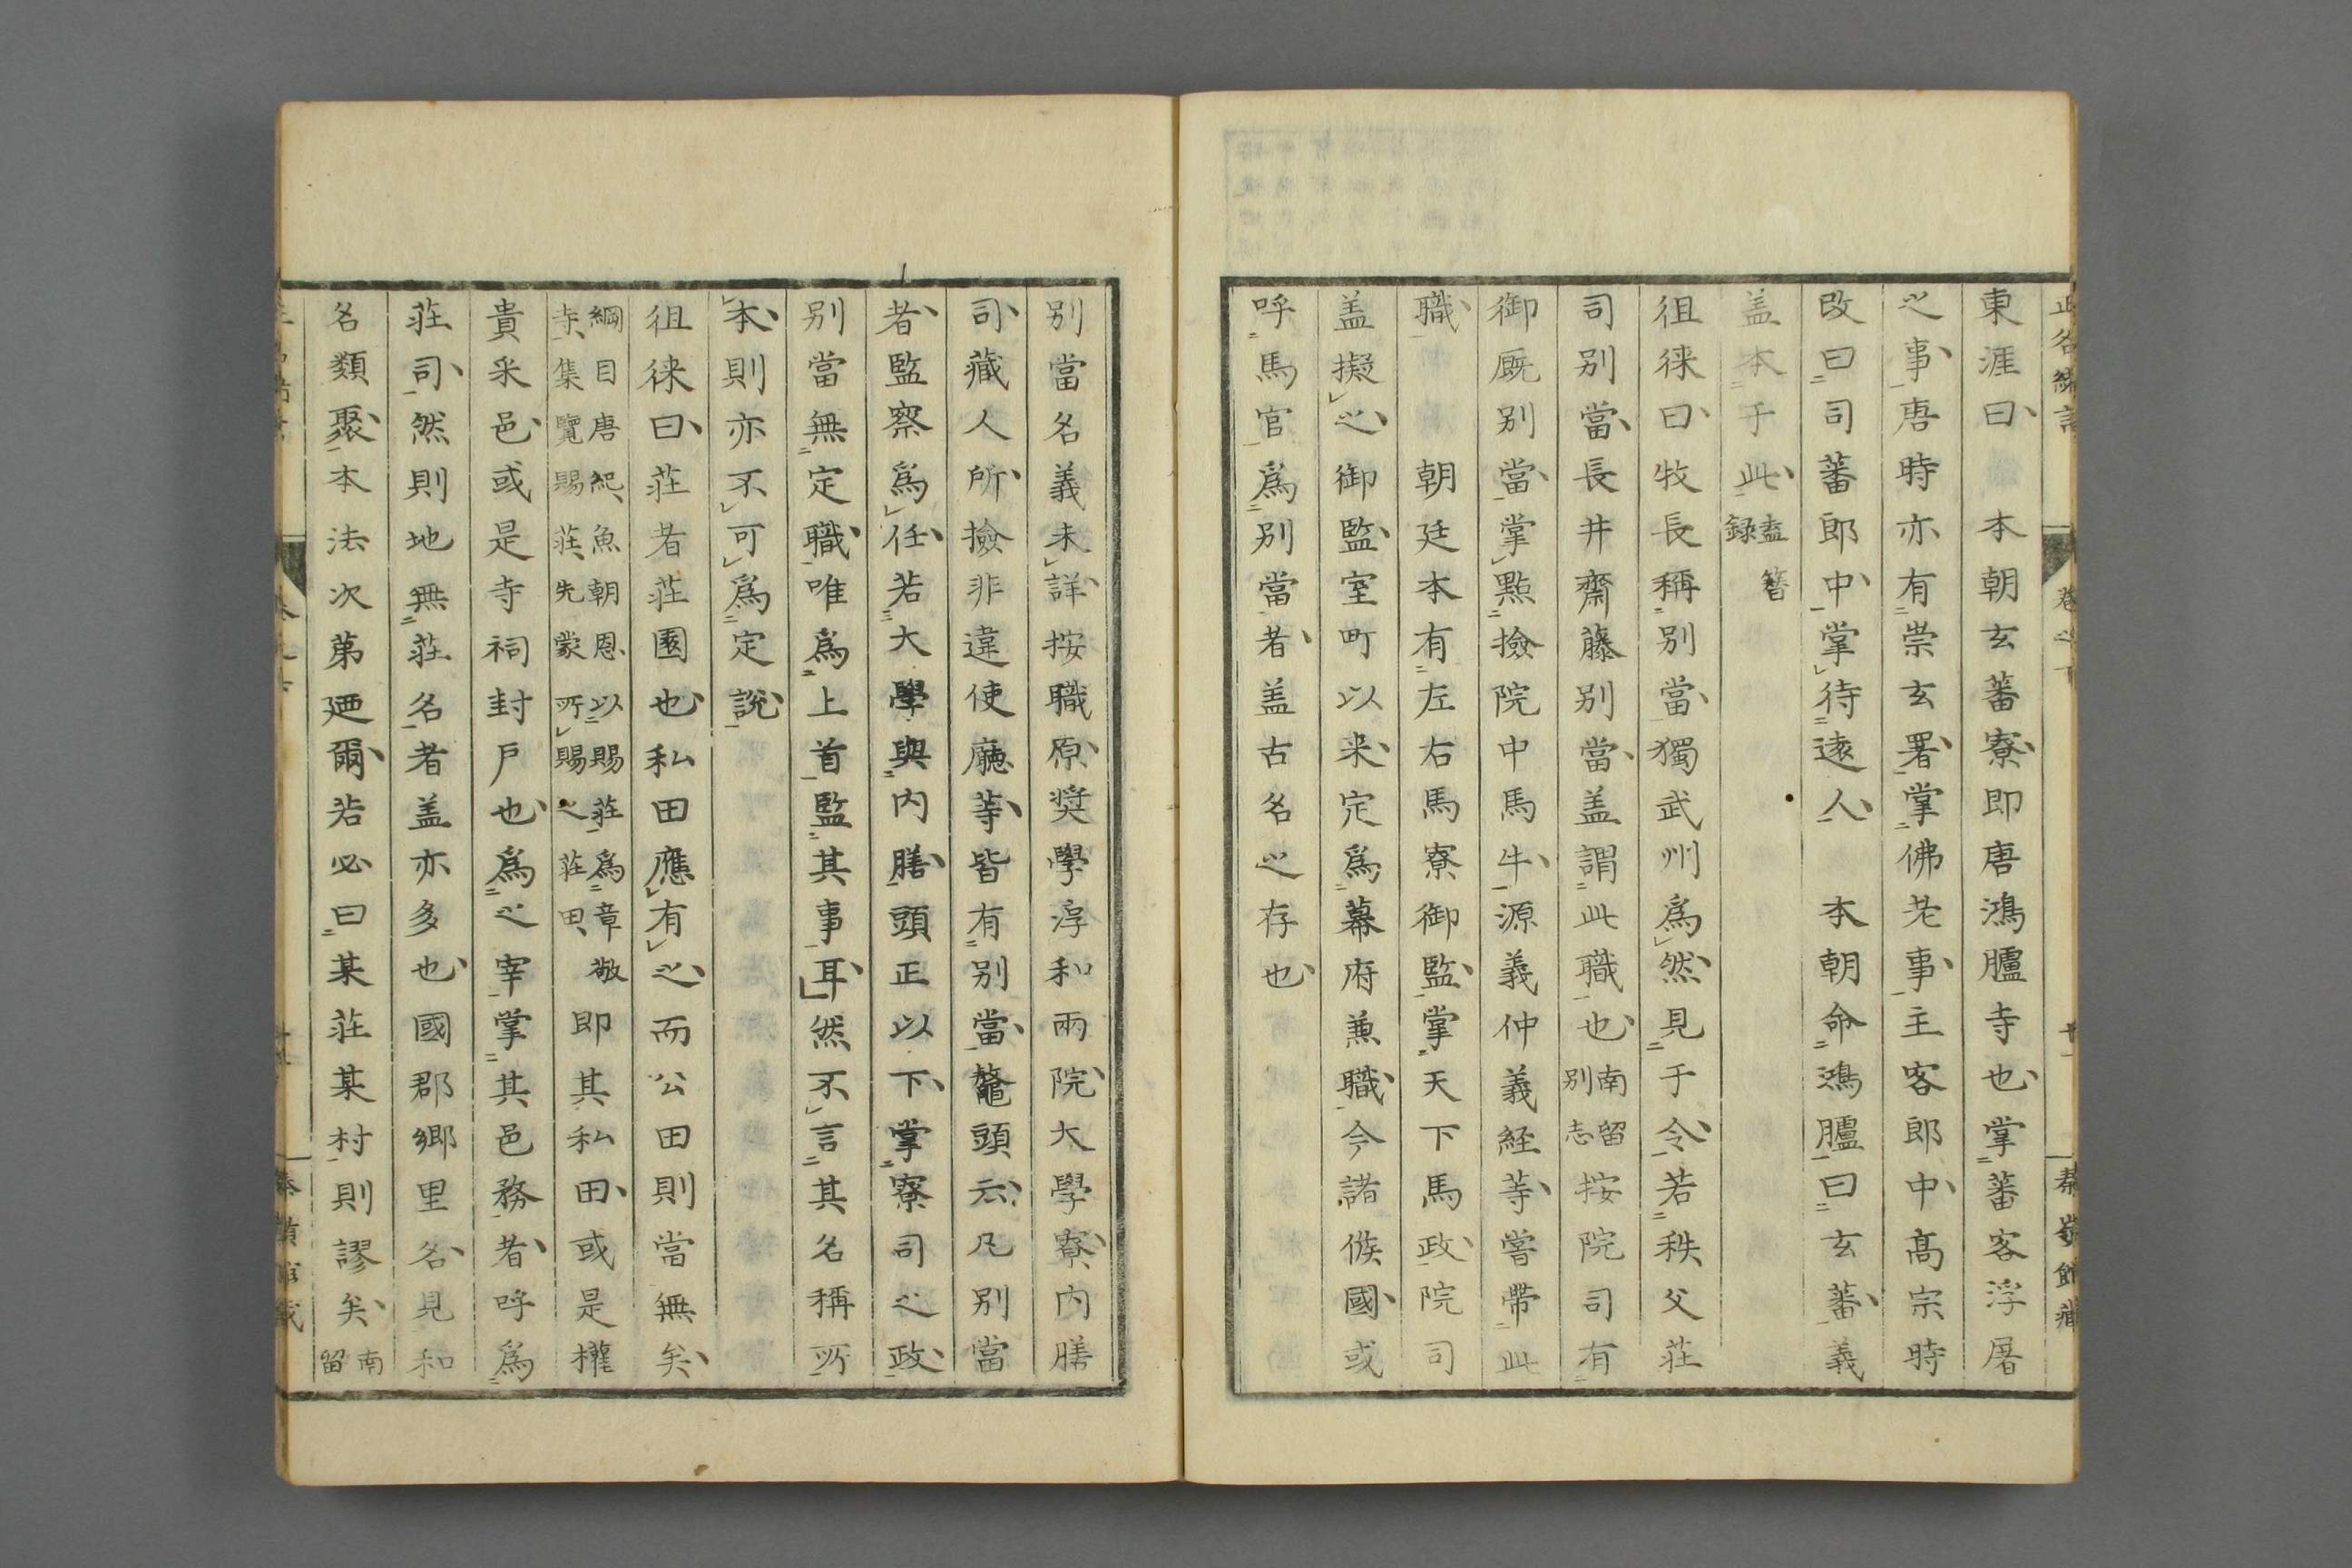 東涯曰 本朝玄蕃寮即唐鴻臚寺也掌蕃客浮屠
之事唐時亦有崇玄署掌佛老事主客郎中高宗時
改曰司蕃郎中掌待遠人 本朝命鴻臚曰玄蕃義
盖本于此盍簪錄
徂徠曰牧長稱別當獨武州爲然見于令若秩父莊
司別當長井齋藤別當盖謂此職也南留別志按院司有
御厩別當掌點撿院中馬牛源義仲義経等嘗帶此
職 朝廷本有左右馬寮御監掌天下馬政院司
盖擬之御監室町以来定爲幕府兼職今諸侯國或
呼馬官爲別當者盖古名之存也
別當名義未詳按職原奨學淳和兩院大學寮內膳
司藏人所撿非違使廳等皆有別當鼇頭云凡別當
者監察爲任若大學與內膳頭正以下掌寮司之政
別當無定職唯爲上首監其事耳然不言其名稱所
本則亦不可爲定說
徂徠曰莊者莊園也私田應有之而公田則當無矣
綱目唐紀魚朝恩以賜莊爲章敬
寺集覽賜莊先蒙所賜之莊田即其私田或是權
貴釆邑或是寺祠封戶也爲之宰掌其邑務者呼爲
莊司然則地無莊名者盖亦多也國郡鄉里名見和
名類聚本法次第廼爾若必曰某莊某村則謬矣南留